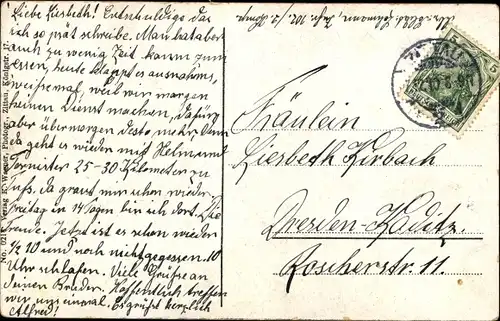 Liebe Liesbeth! Entschuldige daß
ich so spät schreibe. Man hat aber
auch zu wenig Zeit kaum zum
essen, heute klappt es ausnahms
weise mal, weil wir morgen
keinen Dienst machen, dafür
aber übermorgen desto mehr, denn
da geht es wieder mit Helm und
Tornister 25-30 Kilometer zu
Fuß. Da graut mir schon wieder.
Freitag in 14 Tagen bin ich dort. Die
Freude. Jetzt ist es schon wieder
1/2 10 und noch nicht gegessen. 10
Uhr schlafen. Viele Grüße an
Deinen Bruder. Hoffentlich treffen
wir uns einmal. Es grüßt herzlich
Alfred!
Fräulein
Liesbeth Kirbach
Dresden-Kaditz.
Roscherstr. 11.
Verlag R. Wagner, Photogr., Zittau, Königstr.
ZITTAU